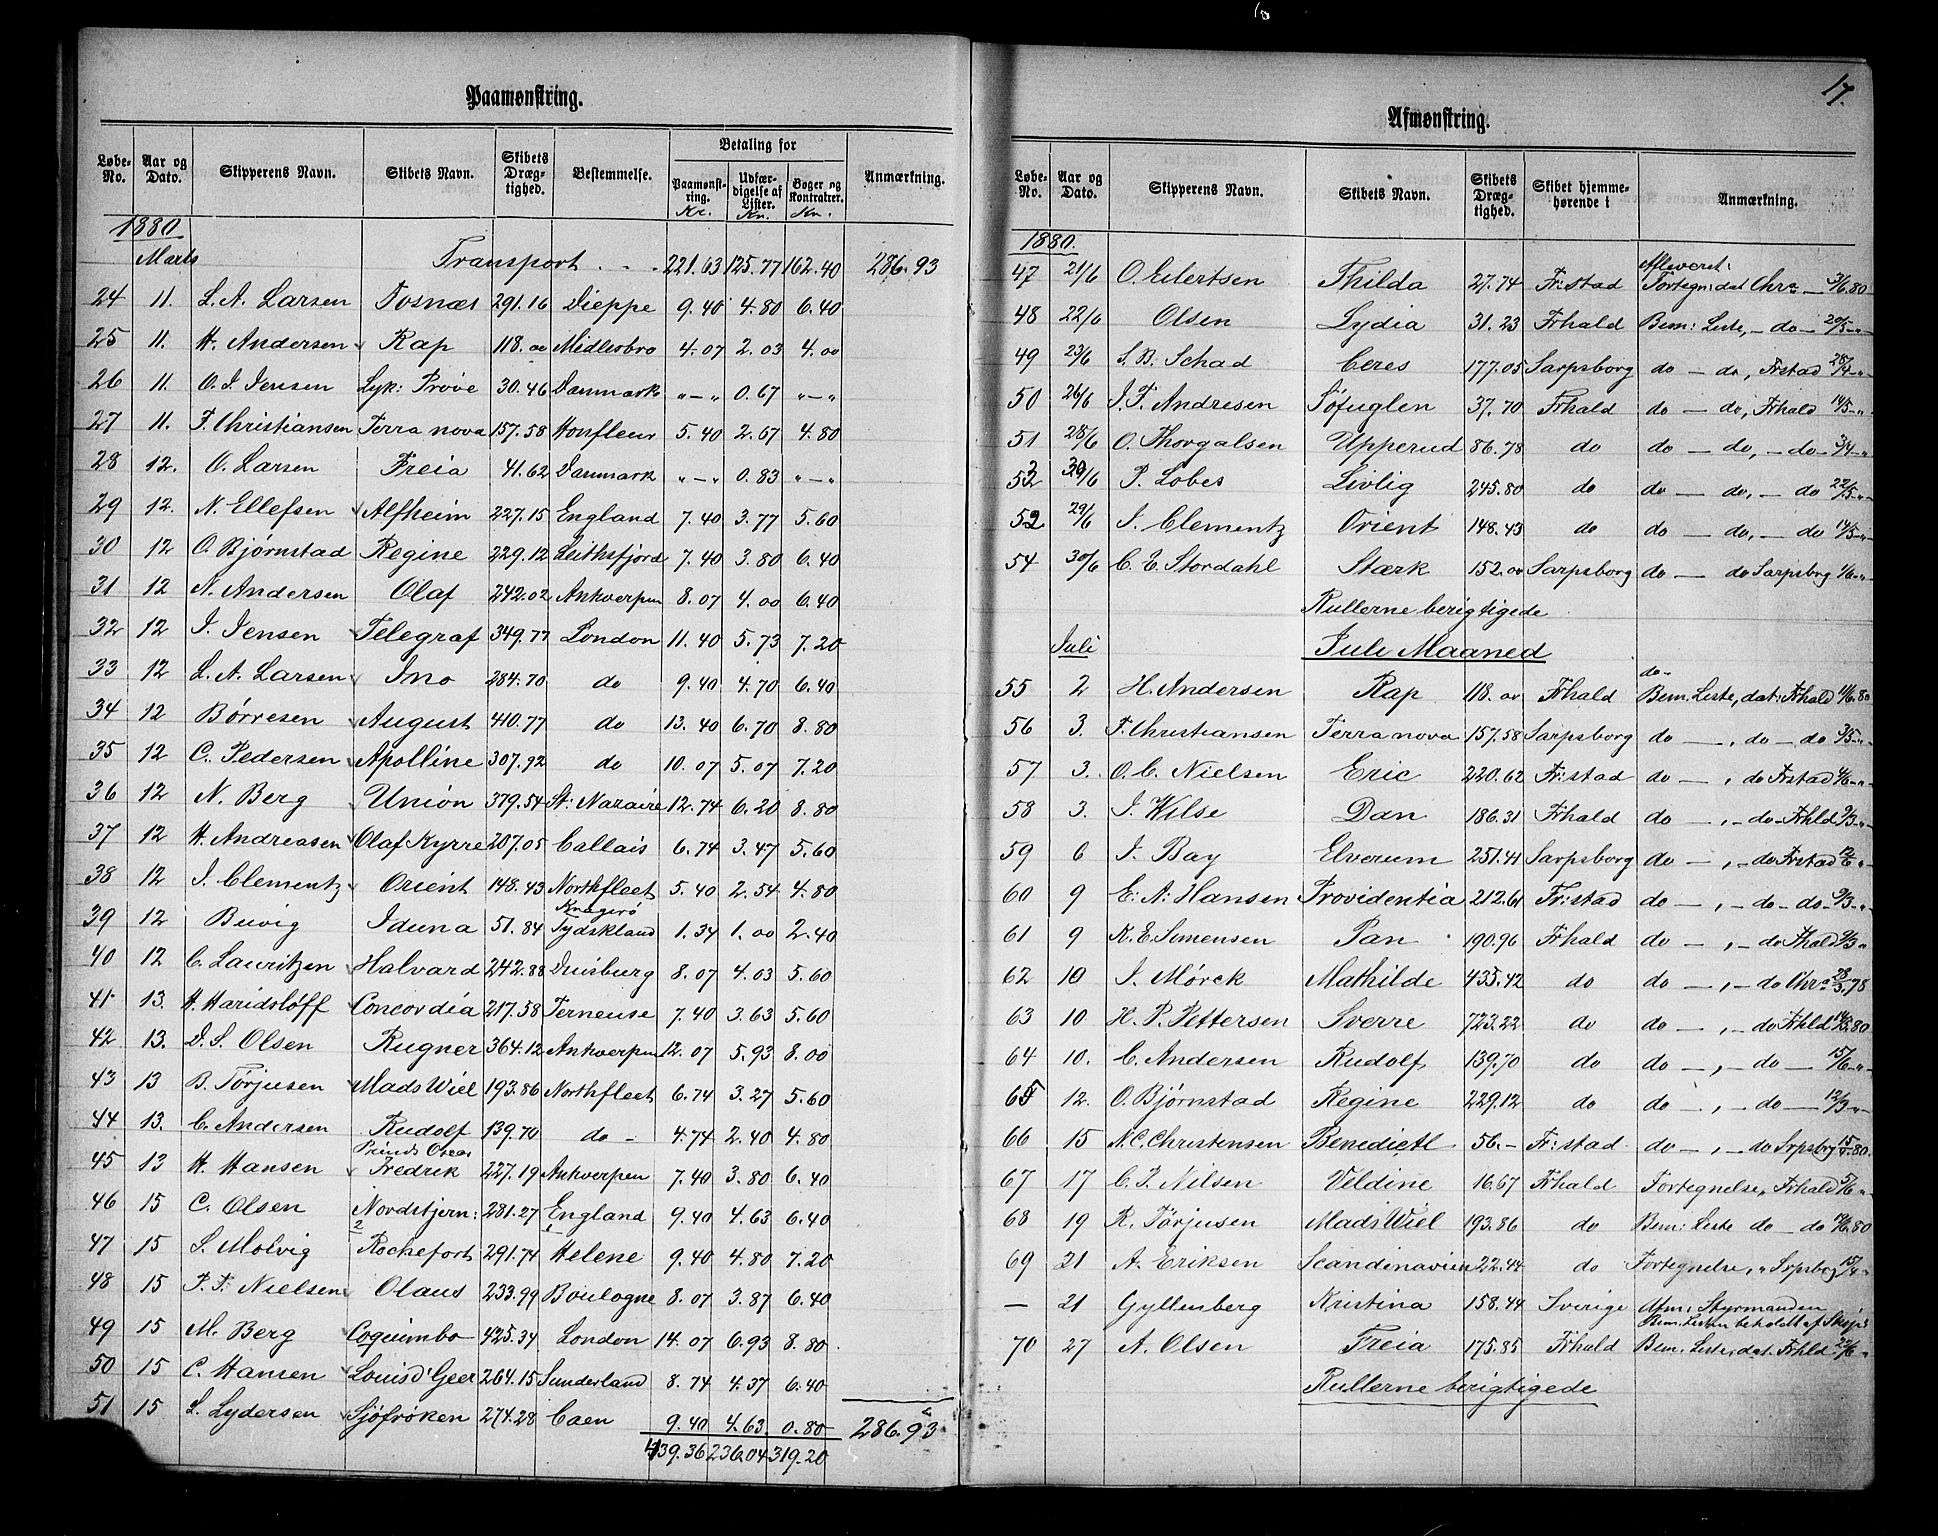 17.
Paamønstring.
Løbe-No. Aar og Dato. Skipperens Navn. Skibets Navn. Skibets Dræg-tighed. Bestemmelse. Betaling for Paamønst-ring. Kr. Udfær-digelse af Lister. Kr. Bøger og Kontrakter. Kr. Anmærkning.
1880
Marts Transport . . . 221.63 125.77 162.40 286.93
24 11. L. A. Larsen Tosnæs 291.16 Dieppe 9.40 4.80 6.40
25 11. H. Andersen Rap 118.00 Midlesbro 4.07 2.03 4.00
26 11. O. I. Jensen Lyk: Prøve 30.46 Danmark "—" 0.67 "—"
27 11. F. Christiansen Terra nova 157.58 Honfleur 5.40 2.67 4.80
28 12. O. Larsen Freia 41.62 Danmark "—" 0.83 "—"
29 12. N. Ellefsen Alfheim 227.15 England 7.40 3.77 5.60
30 12 O. Bjørnstad Regine 229.12 Leithsfjord 7.40 3.80 6.40
31 12 N. Andersen Olaf 242.02 Antverpen 8.07 4.00 6.40
32 12 I. Jensen Telegraf 349.77 London 11.40 5.73 7.20
33 12 L. A. Larsen Ino 284.70 do 9.40 4.70 6.40
34 12 Børresen August 410.77 do 13.40 6.70 8.80
35 12 C. Pedersen Apolline 307.92 do 10.07 5.07 7.20
36 12 N. Berg Union 379.54 St: Nazaire 12.74 6.20 8.80
37 12 H. Andreasen Olaf Kyrre 207.05 Callais 6.74 3.47 5.60
38 12 I. Clementz Orient 148.43 Northfleet 5.40 2.54 4.80
39 12 Buvig Iduna 51.84 Kragerø Tydskland 1.34 1.00 2.40
40 12 C. Lauritzen Halvard 242.88 Duisburg 8.07 4.03 5.60
41 13. H. Haridsløff Concordia 217.58 Terneuse 7.40 3.63 5.60
42 13. D. S. Olsen Rugner 364.12 Antverpen 12.07 5.93 8.00
43 13 B. Tørjusen Mads Wiel 193.86 Northfleet 6.74 3.27 5.60
44 13. C. Andersen Rudolf 139.70 do - 4.74 2.40 4.80
45 13 H. Hansen Prinds Oscar Fredrik 227.19 Antverpen 7.40 3.80 6.40
46 15 C. Olsen Nordstjern: 281.27 England 9.40 4.63 6.40
47 15 S. Molvig 2 Rochefort 291.74 1 Helene 9.40 4.80 7.20
48 15 P. F. Nielsen Olaus 233.99 Boulogne 8.07 3.87 6.40
49 15 M. Berg Coquimbo 425.34 London 14.07 6.93 8.80
50 15 C. Hansen Louis d'Geer 264.15 Sunderland 8.74 4.37 6.40
51 15 L. Lydersen Sjøfrøken 274.28 Caen 9.40 4.63 0.80 286.93
439.36 236.04 319.20
Afmønstring.
Løbe-No. Aar og Dato. Skipperens Navn. Skibets Navn. Skibets Dræg-tighed. Skibet hjemme-hørende i Anmærkning.
1880.
47 21/6 O. Eilertsen Thilda 27.74 Fr:stad Afleveret: Fortegn: dat Chra — 3/6.80
48 22/6 Olsen Lydia 31.23 Frhald Bem: Liste, — do — 20/5 - "-
49 23/6 S. B. Schad Ceres 177.05 Sarpsborg do — do, Frstad 28/4 - "-
50 26/6 I. F. Andresen Søfuglen 37.70 Frhald do — do, Frhald 14/5 - "-
51 28/6 O. Thorgalsen Upperud 86.78 do do — do, — do — 3/4 - "-
53 30/6 P. Lobes Livlig 245.80 do do — do, — do 22/5 - "-
52 29/6 I. Clementz Orient 148.43 do do — do, — do 14/5 - "-
54 30/6 C. E. Stordahl Stærk 152.00 Sarpsborg do — do Sarpsbrg 1/6 - "-
Rullerne berigtigede
Juli Juli Maaned
55 2 H. Andersen Rap 118.00 Frhald do- Bem. Liste, dat: Frhald 4/6.80
56 3. F. Christiansen Terra nova 157.58 Sarpsborg do — , do — do 3/5 - "-
57 3. O. C. Nielsen Eric 220.62 Fr:stad do — , do Frstad 4/6 - "-
58 3. I. Wilse Dan 186.31 Frhald do — , — do — Frhld 9/3 - "-
59 6 I. Bay Elverum 251.41 Sarpsborg do — , — do Frstad 12/6 "-
60 9 E. A. Hansen Providentia 212.61 Fr:stad do — , — do — do — 9/3 - "-
61 9 K. E. Simensen Pan 190.96 Frhald do — , — do Fhald 9/3 - "
62 10 I. Mørck Mathilde 435.42 do do — , — do Chra 28/3.78
63 10 H. P. Pettersen Sverre 723.22 do do — , — do Frhld 14/5.80
64 10. C. Andersen Rudolf 139.70 do do — , — do — 15/6 - "-
65 12. O. Bjørnstad Regine 229.12 do do — , — do — 12/3 - "-
66 15 N. C. Christensen Benedicte 56.— Fr:stad do — , — do Srpsborg 15/5.80.
67 17 C. P. Nilsen Veldine 16.67 Frhald Fortegnelse, Frhald 5/6 "-
68 19 R. Tørjusen Mads Wiel 193.86 do Bem: Liste do — do 19/6.80
69 21 A. Eriksen Scandinavien 22.44 do Fortegnelse, " Srpsborg 15/4 "
— 21 Gyllenberg Kristina 158.44 Sverige Afm: Styrmanden Bem. Listen beholdt af Skip:
70 27 A. Olsen Freia 175.85 Frhald Bem. Liste, dat. Frhld 22/6 "
Rullerne berigtigede